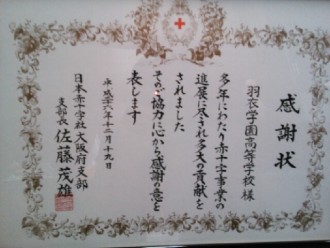 感謝状
羽衣学園高等学校様
多年にわたり赤十字事業の
進展に尽され多大の貢献を
されました
その御協力に心から感謝の意を
表します
平成二十六年十二月十九日
日本赤十字社大阪府支部
支部長 佐藤茂雄